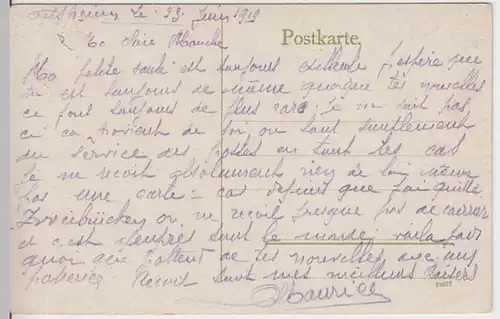 le 23 Juin 1919
Postkarte.
Ma chère Blanche
Ma petite santé est toujours excellente j'espère que
toi est toujours de même quoique tes nouvelles
ce font toujours de plus rare. Je ne sait pas,
ci ca provient de toi, ou sont simplement
du service des postes en tout les cas
Je ne recoit absolument rien de toi
pas une carte = cas depuis que j'ai quitté
Zweibrücken on ne recoit presque pas de courrier
et c'est tout le monde voila pour
quoi de tes nouvelles avec
Recoit tout mes meilleurs baisers
Maurice